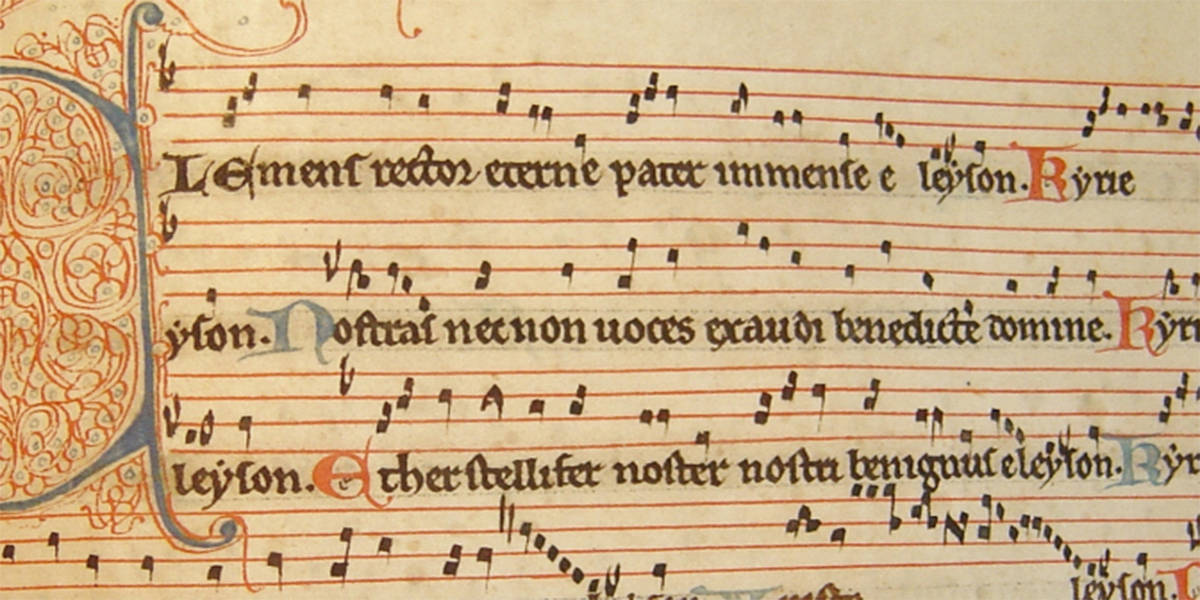 CLEmens rector eterne pater immense e leyson. Kyrie
yson. Nostras necnon uoces exaudi benedicte domine. Kyri
leyson. Ether stellifer noster nostri benignus eleyson. Kyr
leyson.